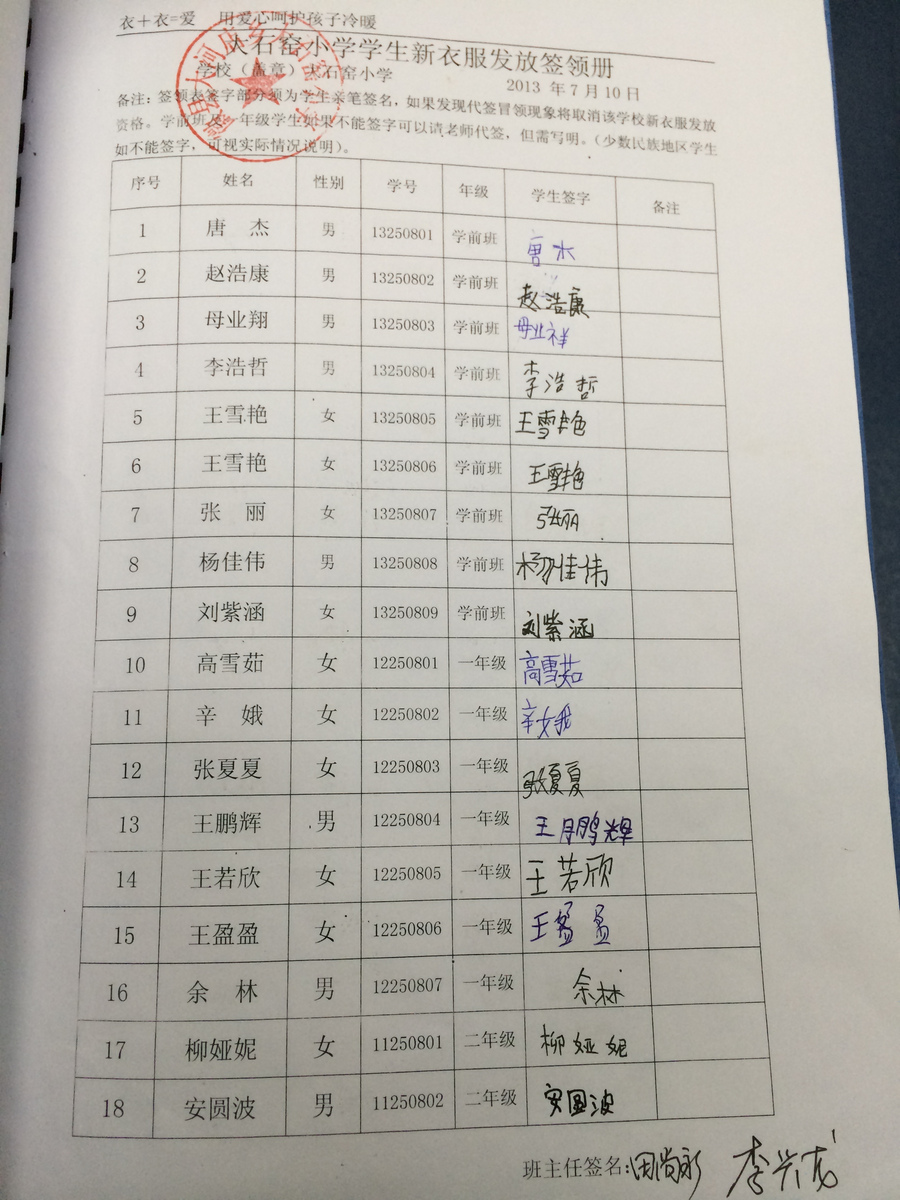 衣+衣=爱 用爱心呵护孩子冷暖
大石窑小学学生新衣服发放签领册
学校(盖章)大石窑小学 2013 年 7 月 10 日
备注:签领表签字部分须为学生亲笔签名,如果发现代签冒领现象将取消该学校新衣服发放
资格。学前班及一年级学生如果不能签字可以请老师代签,但需写明。(少数民族地区学生
如不能签字,可视实际情况说明)。
序号 姓名 性别 学号 年级 学生签字 备注
1 唐 杰 男 13250801 学前班 唐木
2 赵浩康 男 13250802 学前班 赵浩康
3 母业翔 男 13250803 学前班 母业祥
4 李浩哲 男 13250804 学前班 李浩哲
5 王雪艳 女 13250805 学前班 王雪艳
6 王雪艳 女 13250806 学前班 王雪艳
7 张 丽 女 13250807 学前班 张丽
8 杨佳伟 男 13250808 学前班 杨佳伟
9 刘紫涵 女 13250809 学前班 刘紫涵
10 高雪茹 女 12250801 一年级 高雪茹
11 辛 娥 女 12250802 一年级 辛娥
12 张夏夏 女 12250803 一年级 张夏夏
13 王鹏辉 男 12250804 一年级 王鹏辉
14 王若欣 女 12250805 一年级 王若欣
15 王盈盈 女 12250806 一年级 王盈盈
16 余 林 男 12250807 一年级 余林
17 柳娅妮 女 11250801 二年级 柳娅妮
18 安圆波 男 11250802 二年级 安圆波
班主任签名:田尚永 李兴龙